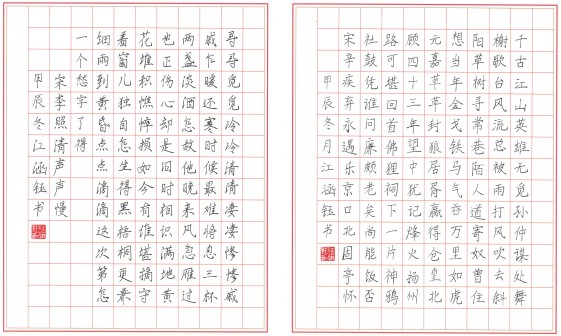 千古江山英雄无觅孙仲谋处舞
榭歌台风流总被雨打风吹去斜
阳草树寻常巷陌人道寄奴曾住
想当年金戈铁马气吞万里如虎
元嘉草草封狼居胥赢得仓皇北
顾四十三年望中犹记烽火扬州
路可堪回首佛狸祠下一片神鸦
社鼓凭谁问廉颇老矣尚能饭否
宋辛疾弃永遇乐京口北固亭怀
甲辰冬月江涵钰书
寻寻觅觅冷冷清清凄凄惨惨戚
戚乍暖还寒时候最难将息三杯
两盏淡酒怎敌他晚来风急雁过
也正伤心却是旧时相识满地黄
花堆积憔悴损如今有谁堪摘守
着窗儿独自怎生得黑梧桐更兼
细雨到黄昏点点滴滴这次第怎
一个愁字了得
宋李照清声声慢
甲辰冬江涵钰书